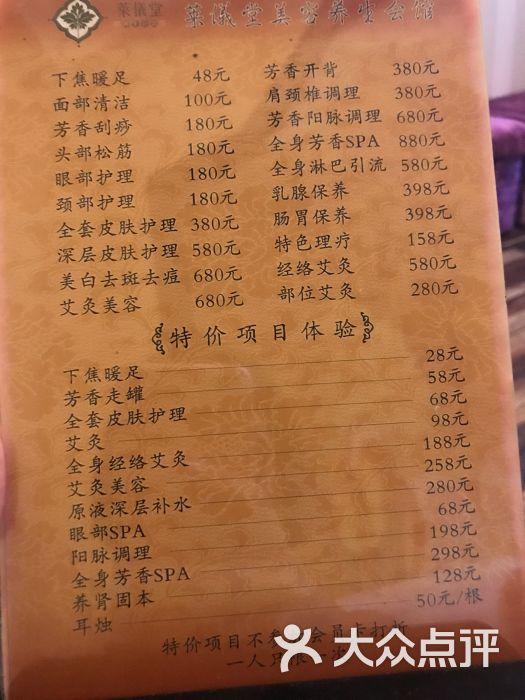 堂美容养生会馆
下焦暖足 48元
面部清洁 100元
芳香刮痧 180元
头部松筋 180元
眼部护理 180元
颈部护理 180元
全套皮肤护理 380元
深层皮肤护理 580元
美白去斑去痘 680元
艾灸美容 680元
芳香开背 380元
肩颈椎调理 380元
芳香阳脉调理 680元
全身芳香SPA 880元
全身淋巴引流 580元
乳腺保养 398元
肠胃保养 398元
特色理疗 158元
经络艾灸 580元
部位艾灸 280元
特价项目体验
下焦暖足 28元
芳香走罐 58元
全套皮肤护理 68元
艾灸 98元
全身经络艾灸 188元
艾灸美容 258元
原液深层补水 280元
眼部SPA 68元
阳脉调理 198元
全身芳香SPA 298元
养肾固本 128元
耳烛 50元/根
特价项目不参 会员卡打折
一人只限一次
大众点评